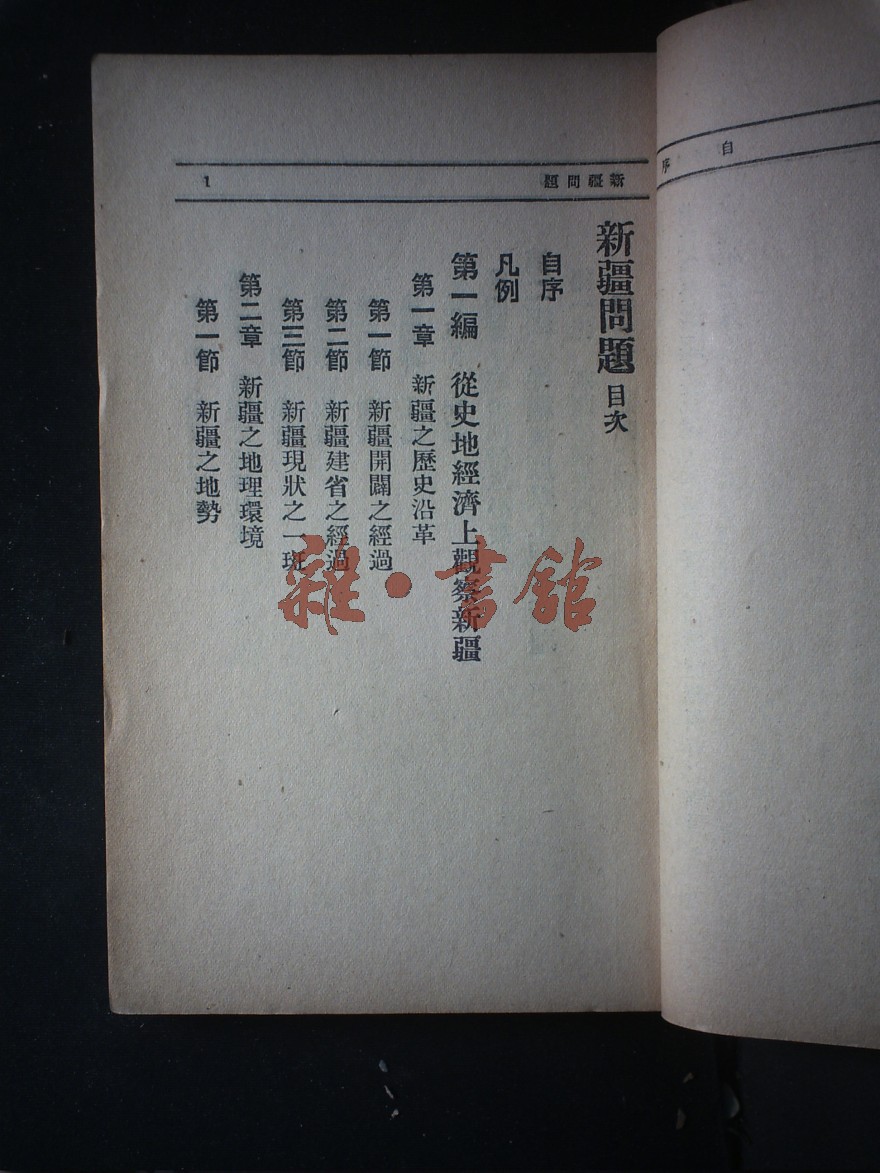 自序
新疆問題
1
新疆問題 目次
自序
凡例
第一編 從史地經濟上觀察新疆
第一章 新疆之歷史沿革
第一節 新疆開闢之經過
第二節 新疆建省之經過
第三節 新疆現狀之一斑
第二章 新疆之地理環境
第一節 新疆之地勢
雜·書館